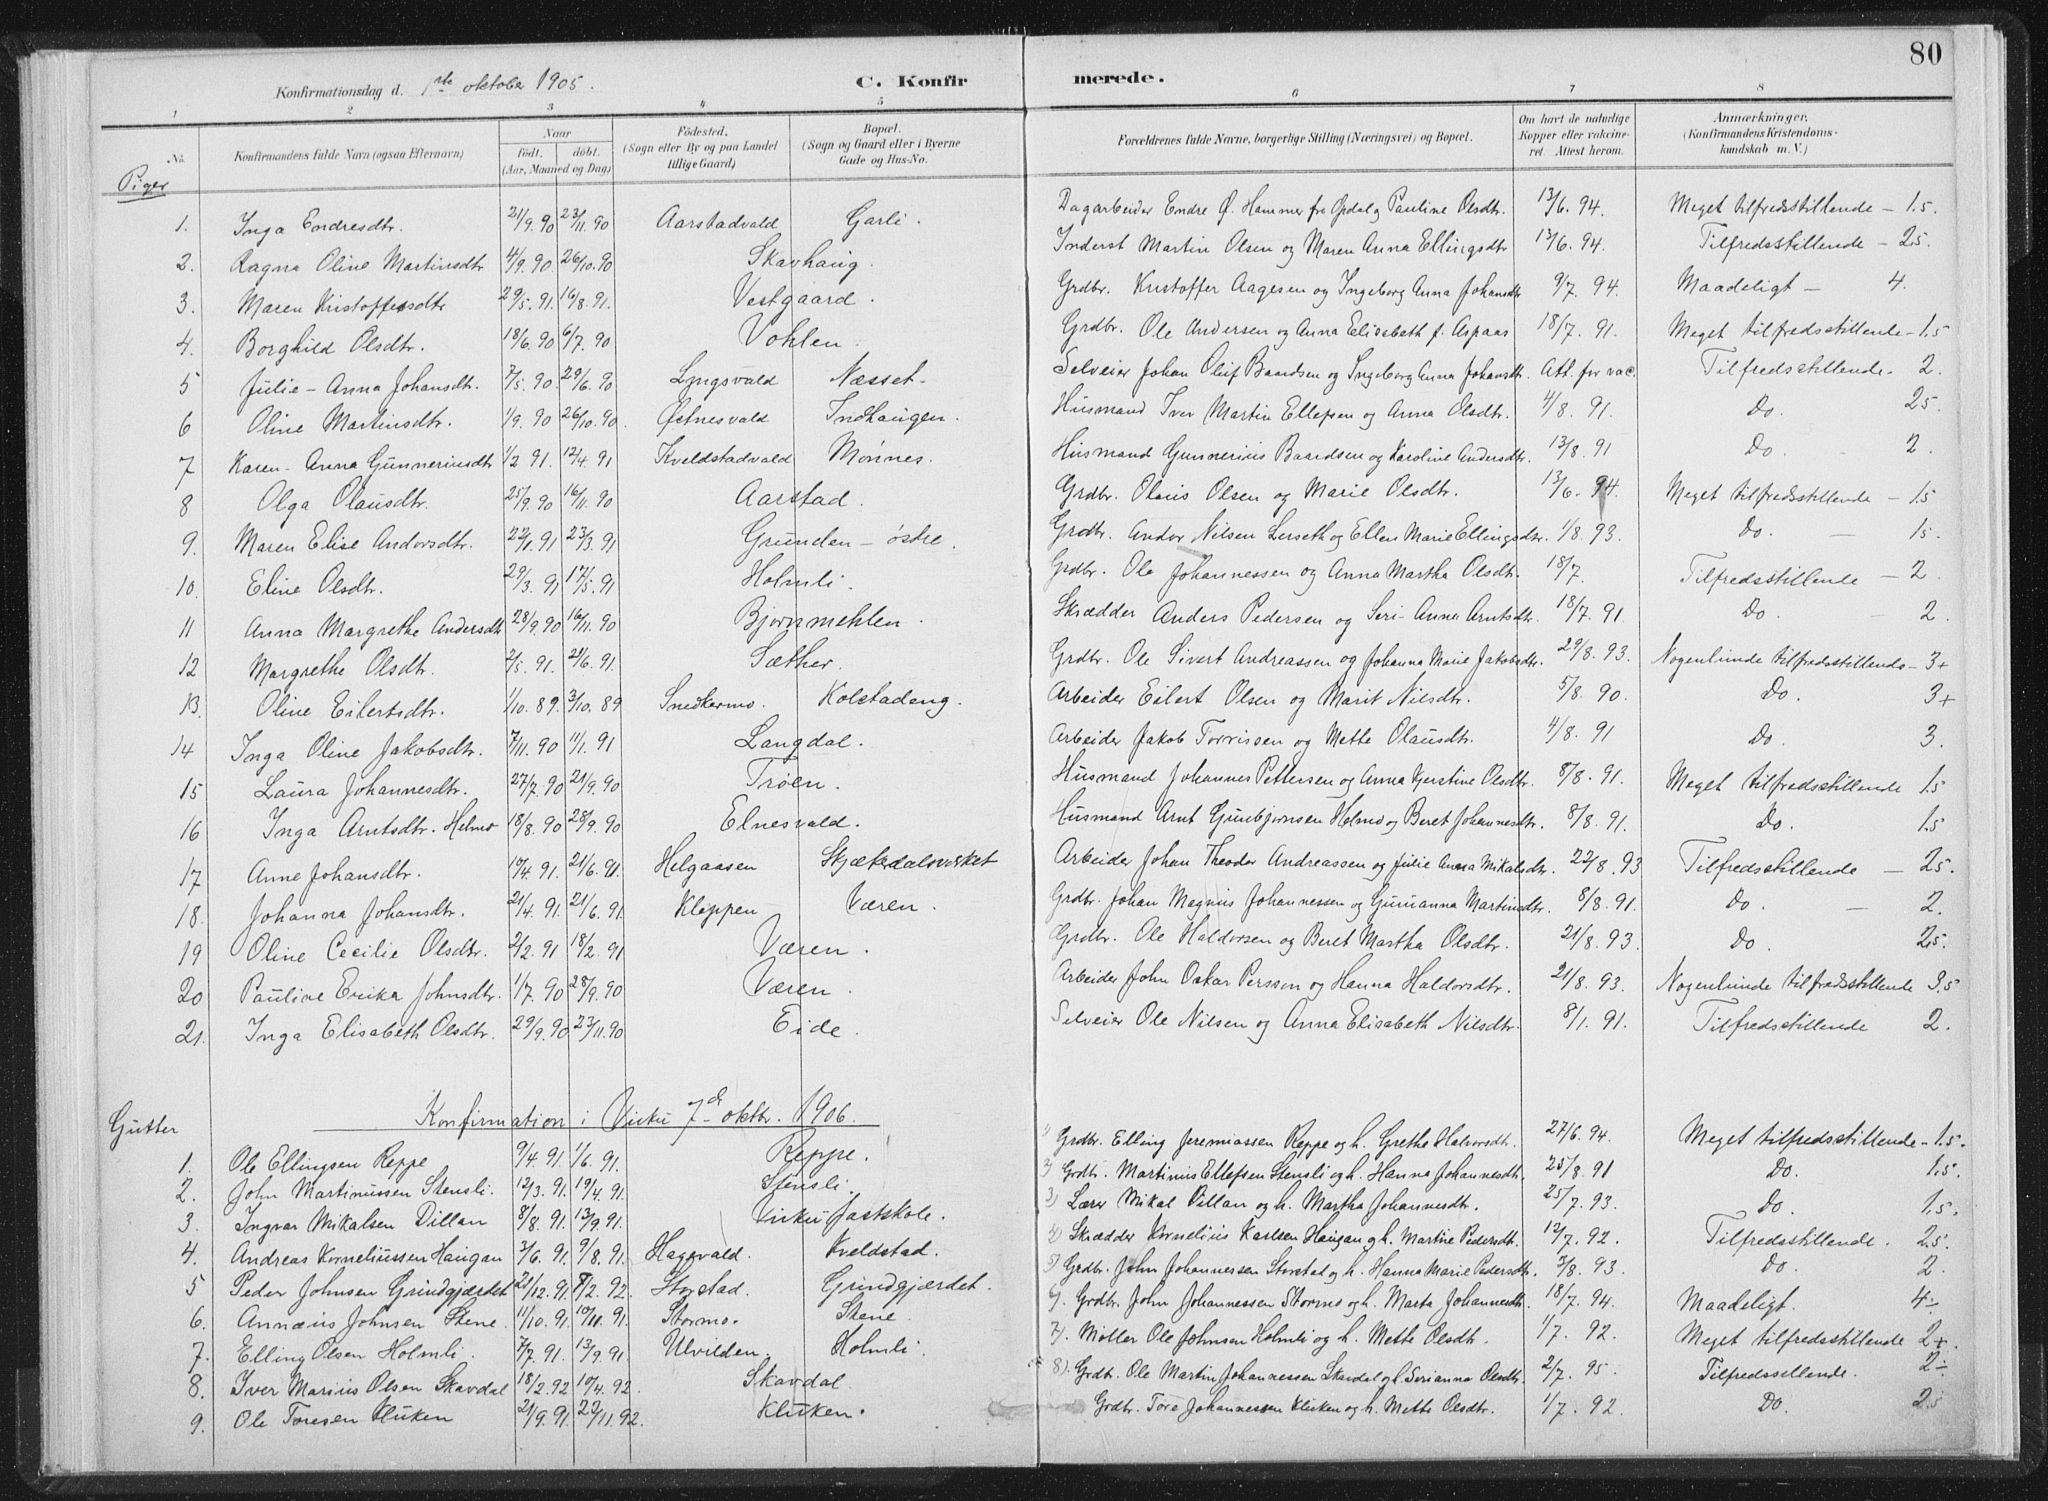 80
Konfirmationsdag d. 1ste oktober 1905.
C. Konfirmerede.
1 2 3 4 5 6 7 8
No. Konfirmandens fulde Navn (ogsaa Efternavn) Naar födt. döbt. (Aar, Maaned og Dag) Födested. (Sogn eller By og paa Landet tillige Gaard) Bopæl. (Sogn og Gaard eller i Byerne Gade og Hus-No. Forældrenes fulde Navne, borgerlige Stilling (Næringsvei) og Bopæl. Om havt de naturlige Kopper eller vakcineret. Attest herom. Anmærkninger. (Konfirmandens Kristendomskundskab m. V.)
Piger
1. Inga Endresdtr. 21/9.90 23/11.90 Aarstadvald Garli. Dagarbeider Endre Ø. Hammer fra Opdal og Pauline Olsdtr. 13/6.94. Meget tilfredsstillende - 1.5.
2. Ragna Oline Martinsdtr 4/9.90 26/10.90 Skavhaug. Inderst Martin Olsen og Maren Anna Ellingsdtr 13/6.94. Tilfredsstillende - 2.5.
3. Maren Kristoffersdtr 29/5.91. 16/8.91. Vestgaard. Grdbr. Kristoffer Aagesen og Ingeborg Anna Johansdtr 9/7.94. Maadeligt - 4.
4. Borghild Olsdtr. 18/6.90 6/7.90 Vohlen. Grdbr. Ole Andersen og Anna Elisabeth f. Aspaas 18/7.91. Meget tilfredsstillende - 1.5
5 Julie-Anna Johansdtr. 7/5.90 29/6.90 Lyngsvald Næsset. Selveier Johan Oluf Baardsen og Ingeborg Anna Johansdtr. Att. for vac. Tilfredsstillende. 2.
6 Oline Martinsdtr. 1/9.90 26/10.90. Østnesvald Indhaugen. Husmand Iver Martin Ellefsen og Anna Olsdtr. 4/8.91. Do. 25.
7 Karen-Anna Gunneriusdtr 1/2 91. 12/4.91 Kveldstadvald Mönnes. Husmand Gunnerius Baardsen og Karoline Andersdtr. 13/8.91 Do. - 2.
8 Olga Olausdtr. 25/9.90 16/11.90 Aarstad. Grdbr. Olaus Olsen og Marie Olsdtr. 13/6.94. Meget tilfredsstillende - 1.5
9. Maren Elise Andorsdtr. 22/1.91 23/3.91 Grunden - östre. Grdbr. Andor Nilsen Lerseth og Ellen Marie Ellingsdtr. 1/8.93. Do. - 1.5.
10. Eline Olsdtr. 29/3.91 17/5.91 Holmli. Grdbr. Ole Johannessen og Anna Martha Olsdtr. 18/7. Tilfredsstillende - 2.
11 Anna Margrethe Andersdtr 28/9.90 16/11.90 Bjørnmehlen. Skrædder Anders Pedersen og Seri-Anna Arntsdtr. 18/7.91. Do. - 2.
12 Margrethe Olsdtr. 2/5.91. 21/6.91. Sæther. Grdbr. Ole Sivert Andreassen og Johanna Marie Jakobsdtr. 29/8.93. Nogenlunde tilfredsstillende - 3+
13. Oline Eilertsdtr. 1/10.89. 3/10.89 Snedkermo. Kolstadeng. Arbeider Eilert Olsen og Marit Nilsdtr. 5/8.90. Do. 3+
14 Inga Oline Jakobsdtr. 7/11.90 11/1.91 Langdal. Arbeider Jakob Torrissen og Mette Olausdtr. 4/8.91 Do. 3.
15 Laura Johannesdtr. 27/7.90 21/9.90 Trøen. Husmand Johannes Pettersen og Anna Kjerstine Olsdtr. 8/8.91. Meget tilfredsstillende 1.5
16 Inga Arntsdtr. Helmo 18/8.90 28/9.90 Elnesvald. Husmand Arnt Gunbjørnsen Helmo og Beret Johannesdtr. 8/8.91. Do. 1.5
17 Anne Johansdtr. 10/4.91. 21/6.91. Helgaasen Skjækerdalsverket Arbeider Johan Theodor Andreassen og Julie Anna Mikalsdtr. 22/8.93 Tilfredsstillende - 25.
18. Johanna Johansdtr. 21/4.91. 21/6.91. Kleppen Væren. Grdbr. Johan Magnus Johannessen og Gurianna Martinsdtr. 8/8.91. Do. - 2.
19 Oline Cecilie Olsdtr. 2/2.91 18/2.91 Væren. Grdbr. Ole Haldorsen og Beret Martha Olsdtr. 21/8.93. Do. 2.5.
20 Pauline Erika Johnsdtr. 1/7.90 28/9.90 Væren. Arbeider John Oskar Persson og Hanna Haldorsdtr. 21/8.93. Nogenlunde tilfredsstillende 3.5
21. Inga Elisabeth Olsdtr. 29/9.90 23/11.90 Eide. Selveier Ole Nilsen og Anna Elisabeth Nilsdtr. 8/1.91. Tilfredsstillende 2.
Konfirmation i Vuku 7d oktbr. 1906.
Gutter
1. Ole Ellingsen Reppe 9/4.91. 1/6.91. Reppe. 1) Grdbr. Elling Jeremiassen Reppe og h. Grethe Halvorsdtr. 27/6.94. Meget tilfredsstillende - 1.5.
2. John Martinussen Stensli. 12/3.91. 19/4.91. Stensli. 2) Grdbr. Martinus Ellefsen Stensli og h. Hanna Johannesdtr. 25/8.91 Do. 1.5.
3. Ingvar Mikalsen Dillan 8/8.91. 13/9.91. Vuku fastskole. 3) Lærer Mikal Dillan og h. Martha Johannesdtr. 25/7.93. Do. 1.5.
4. Andreas Korneliussen Haugan 3/6.91. 9/8.91. Hagavald. Kveldstad. 4) Skrædder Kornelius Karlsen Haugan og h. Martine Pedersdtr. 12/7.92. Tilfredsstillende. 2.5.
5 Peder Johnsen Grindgjærdet 21/12.91. 7/2.92. Storstad. Grindgjærdet. 5) Grdbr. John Johannessen Storstad og h. Hanna Marie Pedersdtr. 3/8.93. Do. 2.
6. Annæus Johnsen Stene. 11/10.91. 10/11.91. Stormo. Stene. Grdbr. John Johannessen Stormo og h. Marta Johannesdtr. 18/7.94. Maadeligt. 4÷
7. Elling Olsen Holmli. 7/7.91. 13/9.91. Ulvilden. Holmli. 7). Møller Ole Johnsen Holmli og h. Mette Olsdtr. 1/7.92. Meget tilfredsstillende 2+.
8. Iver Marius Olsen Skavdal 18/2.92 10/4.92. Skavdal. 8). Grdbr. Ole Martin Johannessen Skavdal og h. Serianna Olsdtr. 2/7.95. Tilfredssellende. 2÷
9. Ole Toresen Kluken 21/9.91. 22/11.92. Kluken. Grdbr. Tore Johannessen Kluken og h. Mette Olsdtr. 1/7.92. Do. 2.5